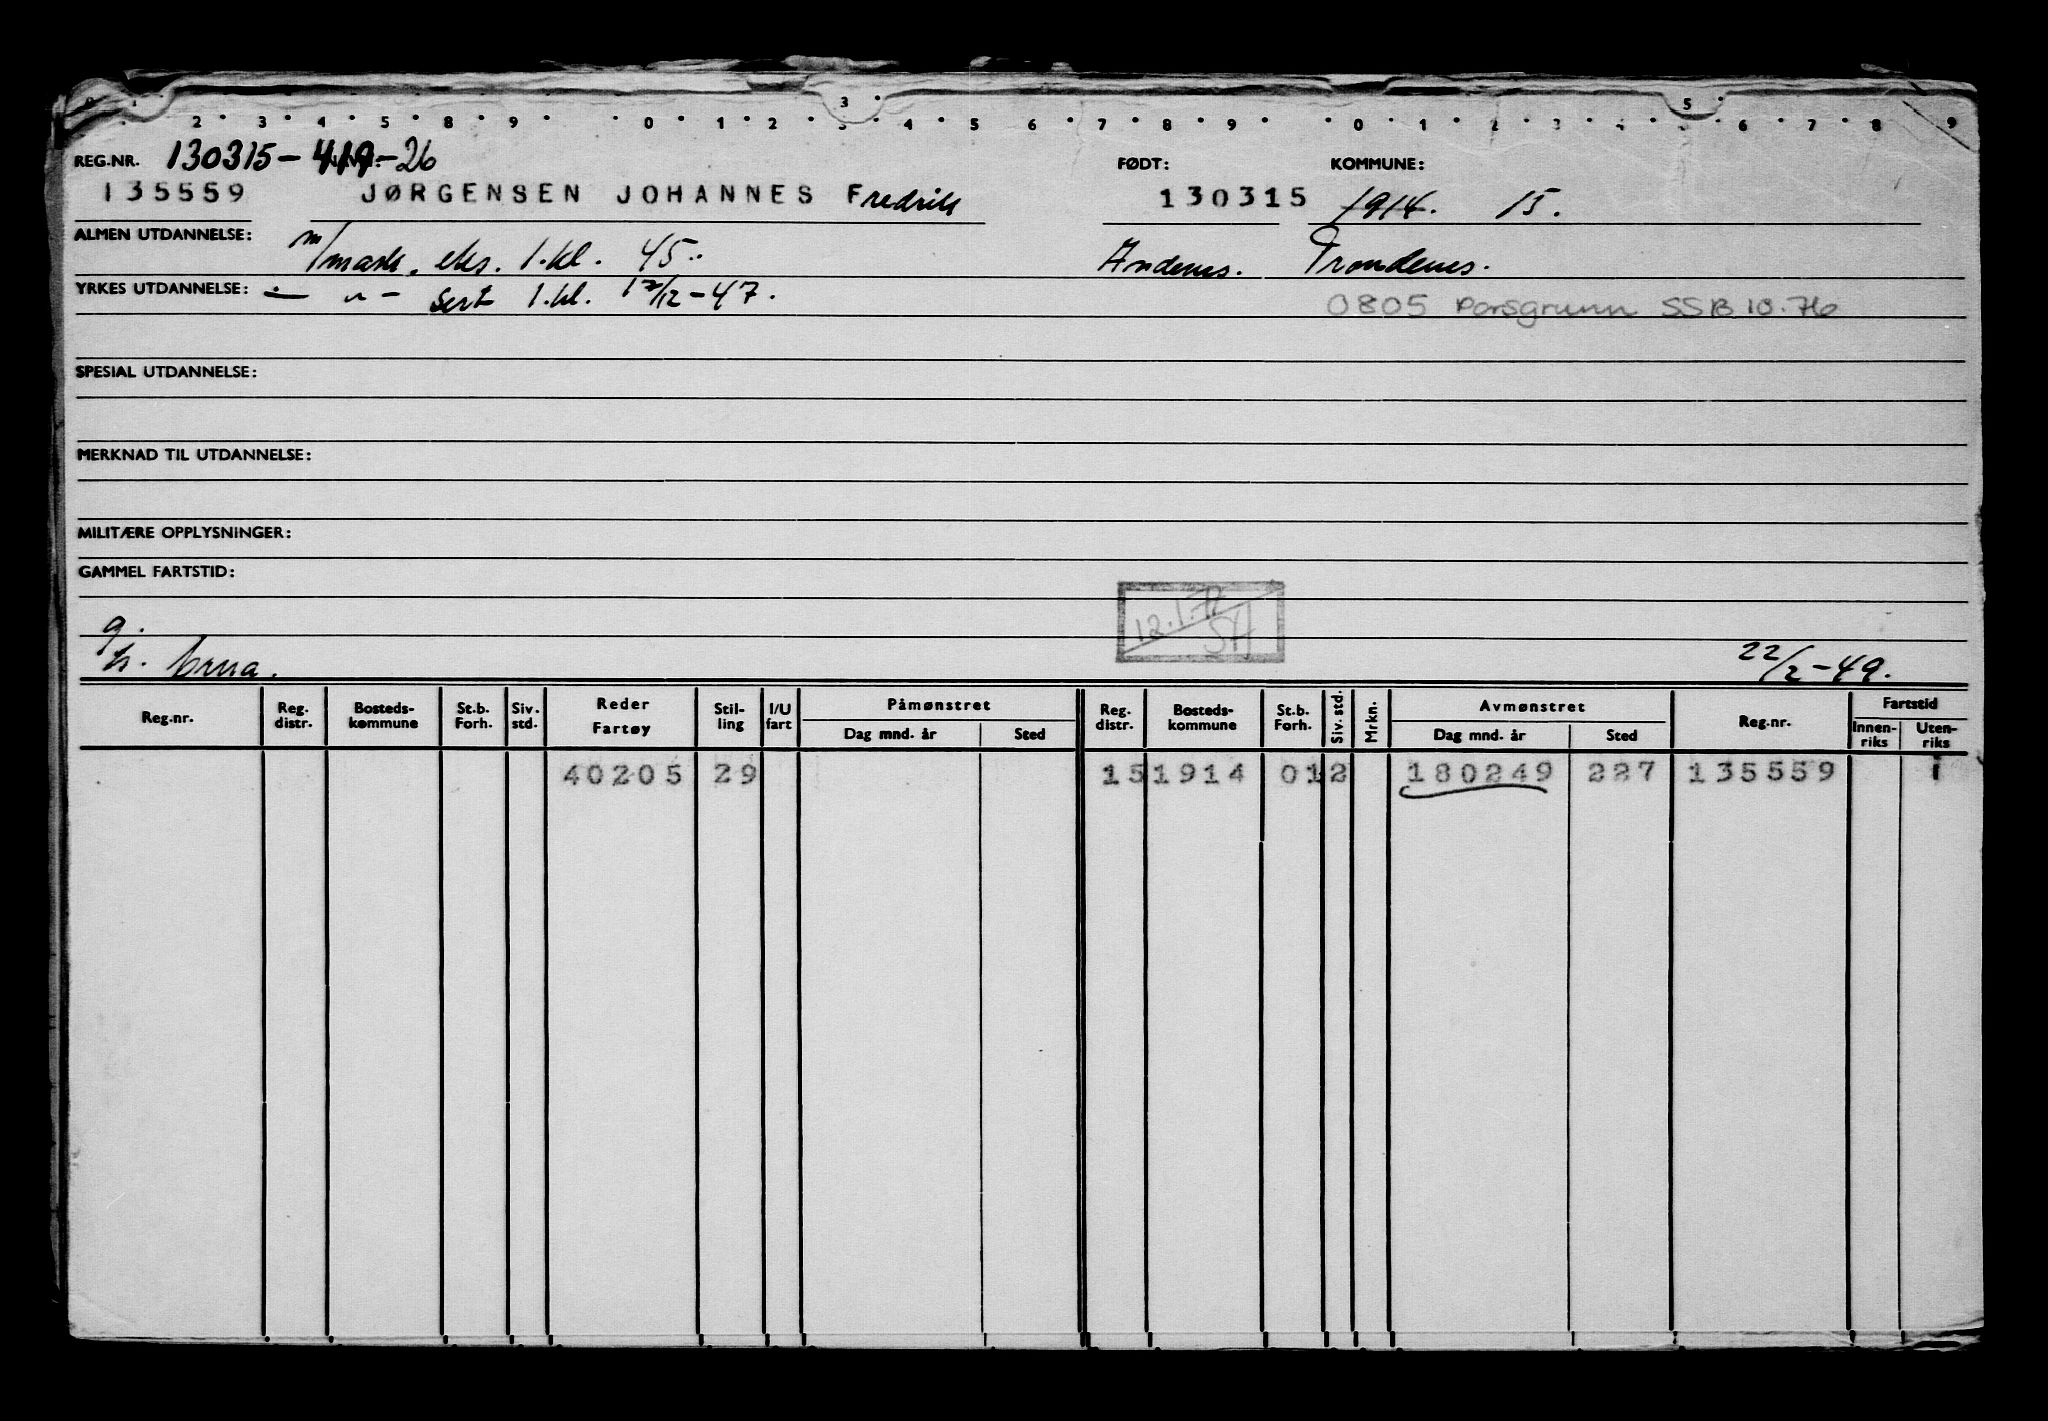 3 5
2 3 4 5 8 9 0 1 2 3 4 5 6 7 8 9 0 1 2 3 4 5 6 7 8 9
REG.NR. 130315-419-26 FØDT: KOMMUNE:
135559 JØRGENSEN JOHANNES Fredrik 130315 1914. 15.
ALMEN UTDANNELSE: m/mask. eks. 1.kl. 45. Andenes. Trondenes.
YRKES UTDANNELSE: — " — sert 1.kl. 12/12-47. 0805 Porsgrunn SSB 10.76
SPESIAL UTDANNELSE:
MERKNAD TIL UTDANNELSE:
MILITÆRE OPPLYSNINGER:
GAMMEL FARTSTID:
12.1.72
SH
22/2-49.
Reg.nr. Reg. distr. Bosteds- kommune St.b. Forh. Siv. std. Reder Fartøy Stil- ling I/U fart Påmønstret Dag mnd. år Sted Reg. distr. Bosteds- kommune St.b. Forh. Siv. std. Mrkn. Avmønstret Dag mnd. år Sted Reg.nr. Fartstid Innen- riks Uten- riks
40205 29 15 1914 01 2 180249 227 135559 1